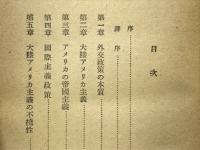 目次
序
譯序
第一章 外交政策の本質
第二章 大陸アメリカ主義
第三章 アメリカの帝國主義
第四章 國際主義政策
第五章 大陸アメリカ主義の不穩性